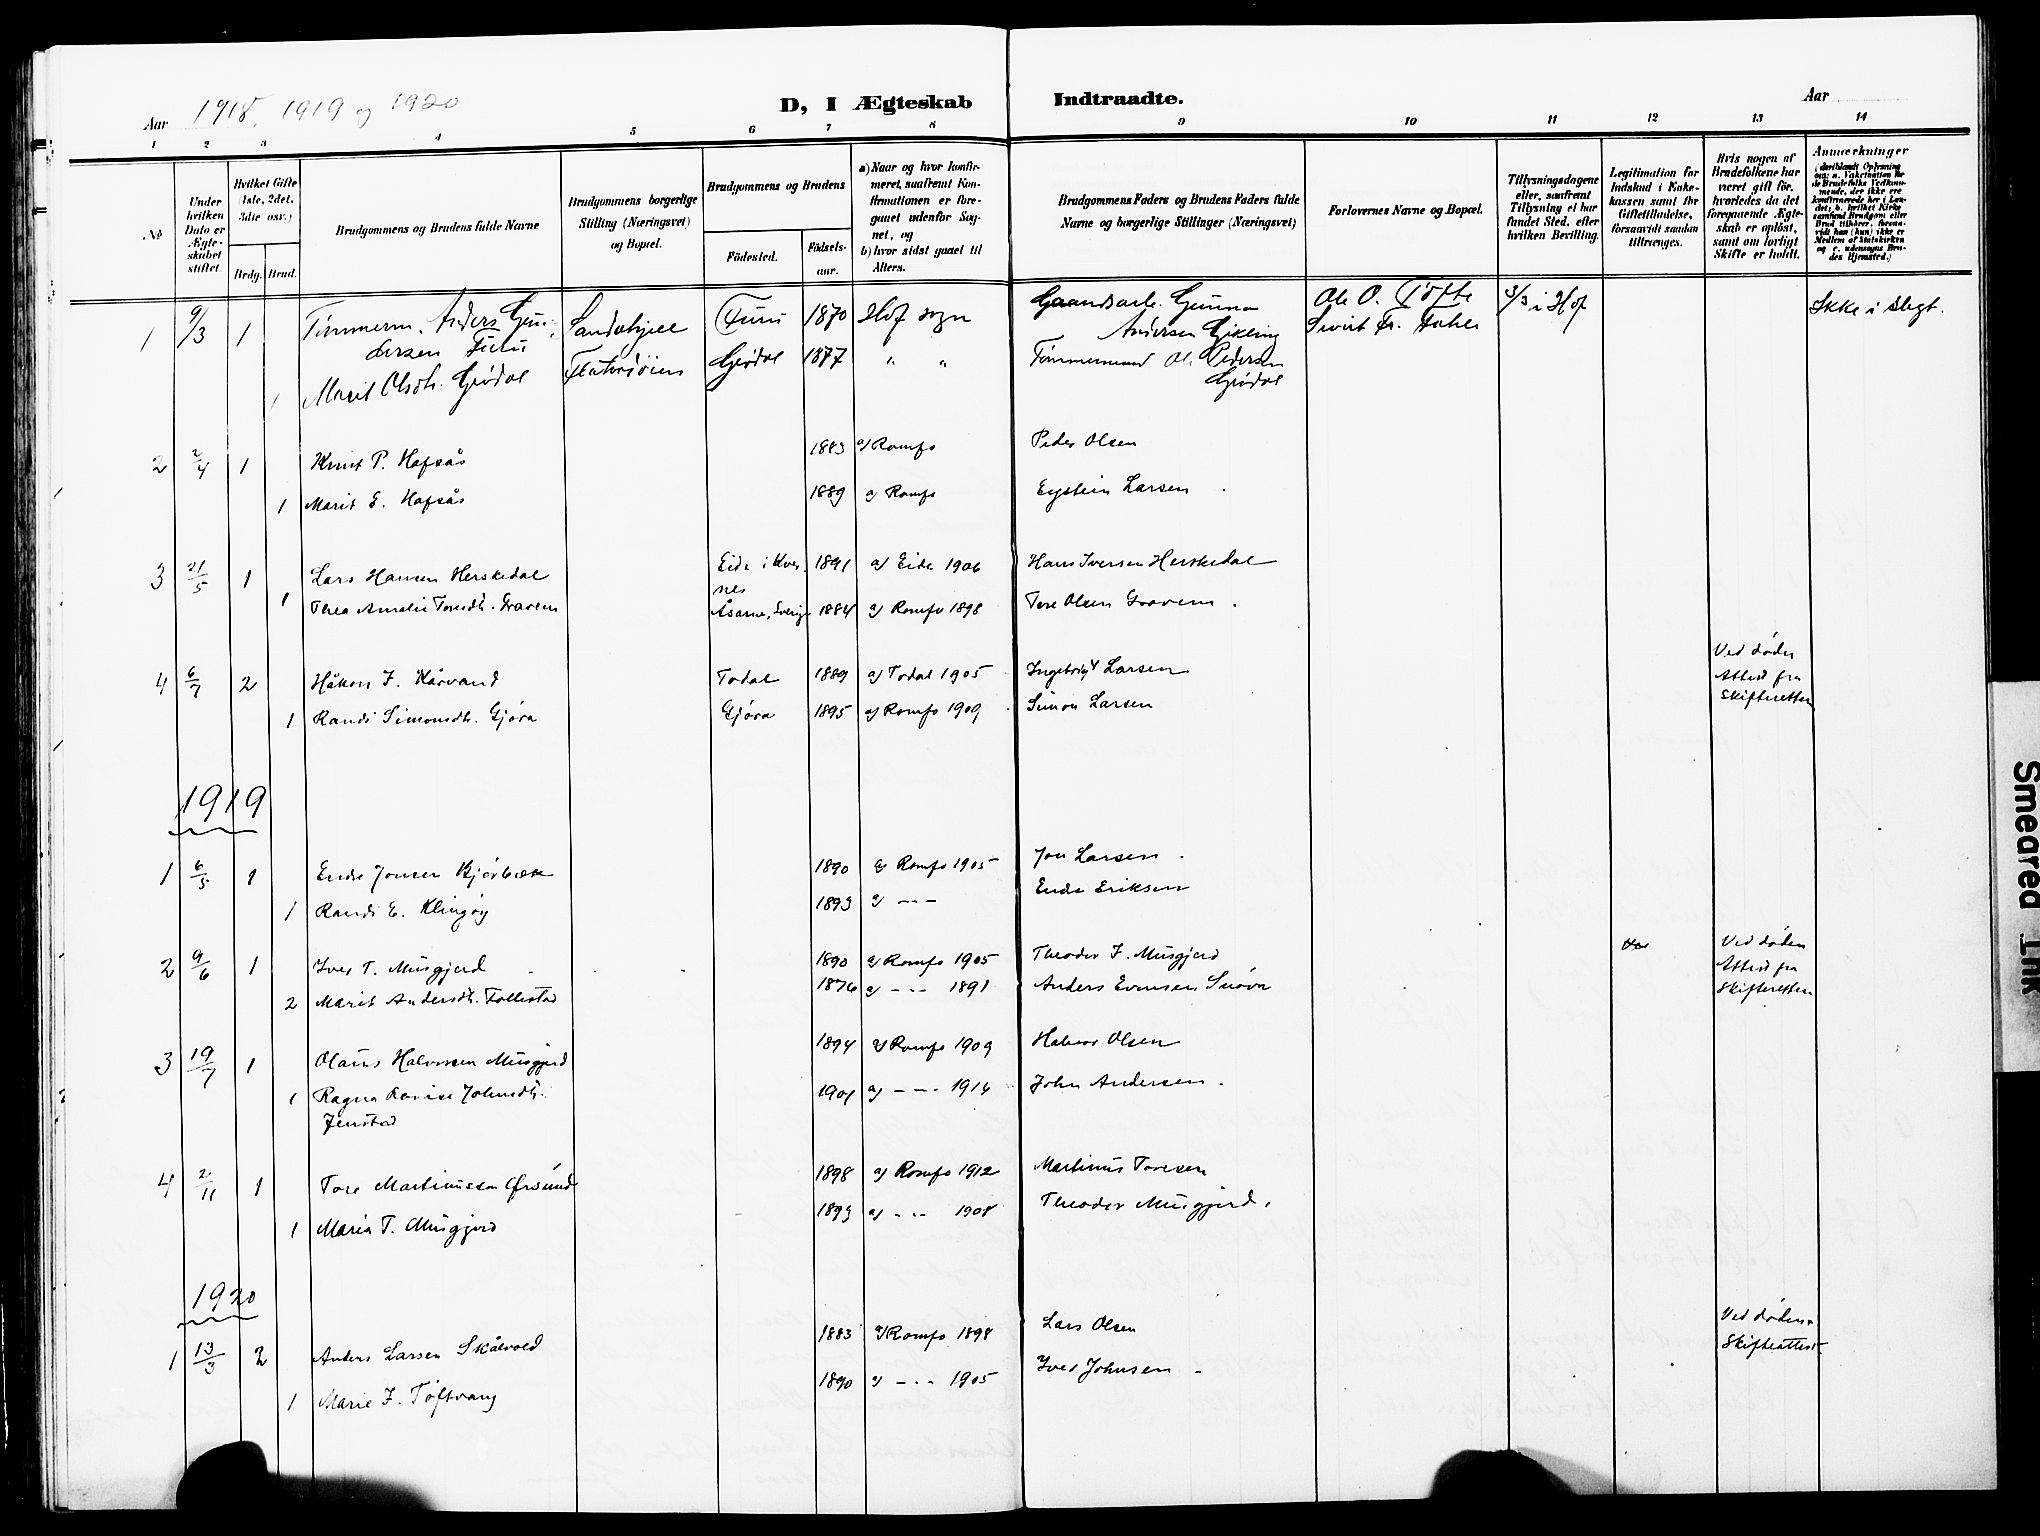 Aar 1918, 1919 og 1920
D, I Ægteskab Indtraadte.
Aar
1 2 3 4 5 6 7 8 9 10 11 12 13 14
No
Under hvilken Dato er Ægteskabet stiftet.
Hvilket Gifte (1ste, 2det, 3die osv.)
Brdg. Brud.
Brudgommens og Brudens fulde Navne
Brudgommens borgerlige Stilling (Næringsvei) og Bopæl.
Brudgommens og Brudens
Födested. Födselsaar.
a) Naar og hvor konfirmeret, saafremt Konfirmationen er foregaaet udenfor Sognet, og
b) hvor sidst gaaet til Alters.
Brudgommens Faders og Brudens Faders fulde Navne og borgerlige Stillinger (Næringsvei)
Forlovernes Navne og Bopæl.
Tillysningsdagene eller, saafremt Tillysning ei har fundet Sted, efter hvilken Bevilling.
Legitimation for Indskud i Enkekassen samt for Giftetilladelse, forsaavidt saadan tiltrænges.
Hvis nogen af Brudefolkene har været gift för, hvorledes da det foregaaende Ægteskab er oplöst, samt om lovligt Skifte er holdt.
Anmærkninger
(deriblandt Oplysning om: a. Vakcination for de Brudefolks Vedkommende, der ikke ere konfirmerede her i Landet; b. hvilket Kirkesamfund Brudgom eller Brud tilhörer, forsaavidt han (hun) ikke er Medlem af Statskirken og c. udensogns Brudes Hjemsted.)
1 9/3 1 Tömmerm. Anders Gundersen Furu Furu 1870 Hof sogn Gaardsarb. Gunnar Andersen Gikling Ole O. Töfte 3/3 i Hof Ikke i slegt.
Sivert Fr. Dahle
1 Marit Olsdt. Gródal Gródal 1877 " " Tömmermand Ole Pedersen Grödal
2 2/4 1 Knut P. Hafsås 1883 a) Romfo Peder Olsen
1 Marit E. Hafsås 1889 a) Romfo Eystein Larsen
3 21/5 1 Lars Hansen Herskedal Eide i Kvernes 1891 a) Eide 1906 Hans Iversen Herskedal
1 Terea Amalie Toresdt. Gravem Åsarne, Sverige 1884 a) Romfo 1898 Tore Olsen Gravem
4 6/7 2 Håkon I. Kårvand Todal 1889 a) Todal 1905 Ingebrigt Larsen Ved döden
Attest fra
Skifteretten
1 Randi Simonsdt. Gjöra Gjöra 1895 a) Romfo 1909 Simon Larsen
1919
1 6/5 1 Endre Jonsen Bjørbæk 1890 a) Romfo 1905 Jon Larsen
1 Randi E. Klingöy 1893 a) - - - Endre Eriksen
2 9/6 1 Iver T. Musgjerd 1890 a) Romfo 1905 Theodor I. Musgjerd Ved döden
Attest fra
Skifteretten
2 Marit Andersdt. Tollestad 1876 a) - - - 1891 Anders Evensen Snöva
3 19/7 1 Olaus Halvorsen Musgjerd 1894 a) Romfo 1909 Halvor Olsen
1 Ragna Lovise Johnsdt. Jenstad 1901 a) - - - 1916 John Andersen
4 2/11 1 Tore Martinussen Ørsund 1898 a) Romfo 1912 Martinus Toresen
1 Maria T. Musgjerd 1893 a) - - - 1908 Theodor Musgjerd
1920
1 13/3 2 Anders Larsen Skålvold 1883 a) Romfo 1898 Lars Olsen Ved döden
Skifteattest
1 Marie I. Töftvang 1890 a) - - - 1905 Iver Johnsen
Smeared Ink